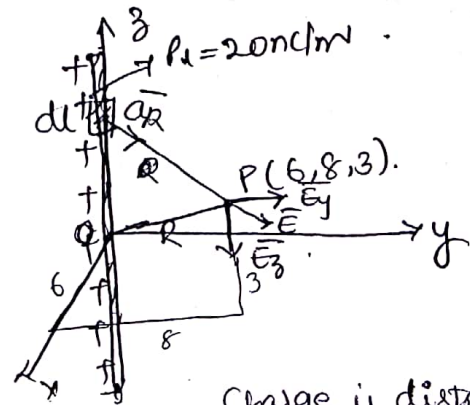 z
ρ_L = 20 nc/m.
dl
a̅_R
R
P(6,8,3).
E̅y
E̅
R
E̅z
y
6
3
8
x
Charge is dist